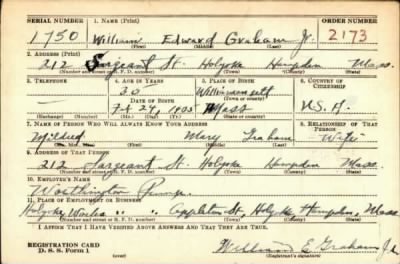 SERIAL NUMBER 1. NAME (Print) ORDER NUMBER
1750 William Edward Graham Jr. 2173
(First) (Middle) (Last)
2. ADDRESS (Print)
212 Sargeant St. Holyoke Hampden Mass.
(Number and street or R. F. D. number) (Town) (County) (State)
3. TELEPHONE 4. AGE IN YEARS 5. PLACE OF BIRTH 6. COUNTRY OF CITIZENSHIP
30
DATE OF BIRTH (Town or county)
— Mass U.S.A.
(Exchange) (No.) (Mo.) (Day) (Yr.) (State or country)
7. NAME OF PERSON WHO WILL ALWAYS KNOW YOUR ADDRESS 8. RELATIONSHIP OF THAT PERSON
Mildred Mary Graham Wife
(Mr., Mrs., Miss) (First) (Middle) (Last)
9. ADDRESS OF THAT PERSON
212 Sargeant St. Holyoke Hampden Mass.
(Number and street or R. F. D. number) (Town) (County) (State)
10. EMPLOYER'S NAME
Worthington Pump
11. PLACE OF EMPLOYMENT OR BUSINESS
Holyoke Works Appleton St, Holyoke Hampden, Mass
(Number and street or R. F. D. number) (Town) (County) (State)
I AFFIRM THAT I HAVE VERIFIED ABOVE ANSWERS AND THAT THEY ARE TRUE.
REGISTRATION CARD
D. S. S. Form 1 (over) William E Graham Jr
(Registrant's signature)